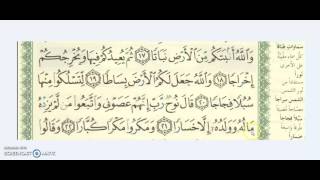 وَٱللَّهُ أَنۢبَتَكُم مِّنَ ٱلْأَرْضِ نَبَاتًا ١٧ ثُمَّ يُعِيدُكُمْ فِيهَا وَيُخْرِجُكُمْ
إِخْرَاجًا ١٨ وَٱللَّهُ جَعَلَ لَكُمُ ٱلْأَرْضَ بِسَاطًا ١٩ لِّتَسْلُكُوا۟ مِنْهَا
سُبُلًا فِجَاجًا ٢٠ قَالَ نُوحٌ رَّبِّ إِنَّهُمْ عَصَوْنِى وَٱتَّبَعُوا۟ مَن لَّمْ يَزِدْهُ
مَالُهُۥ وَوَلَدُهُۥٓ إِلَّا خَسَارًا ٢١ وَمَكَرُوا۟ مَكْرًا كُبَّارًا ٢٢ وَقَالُوا۟